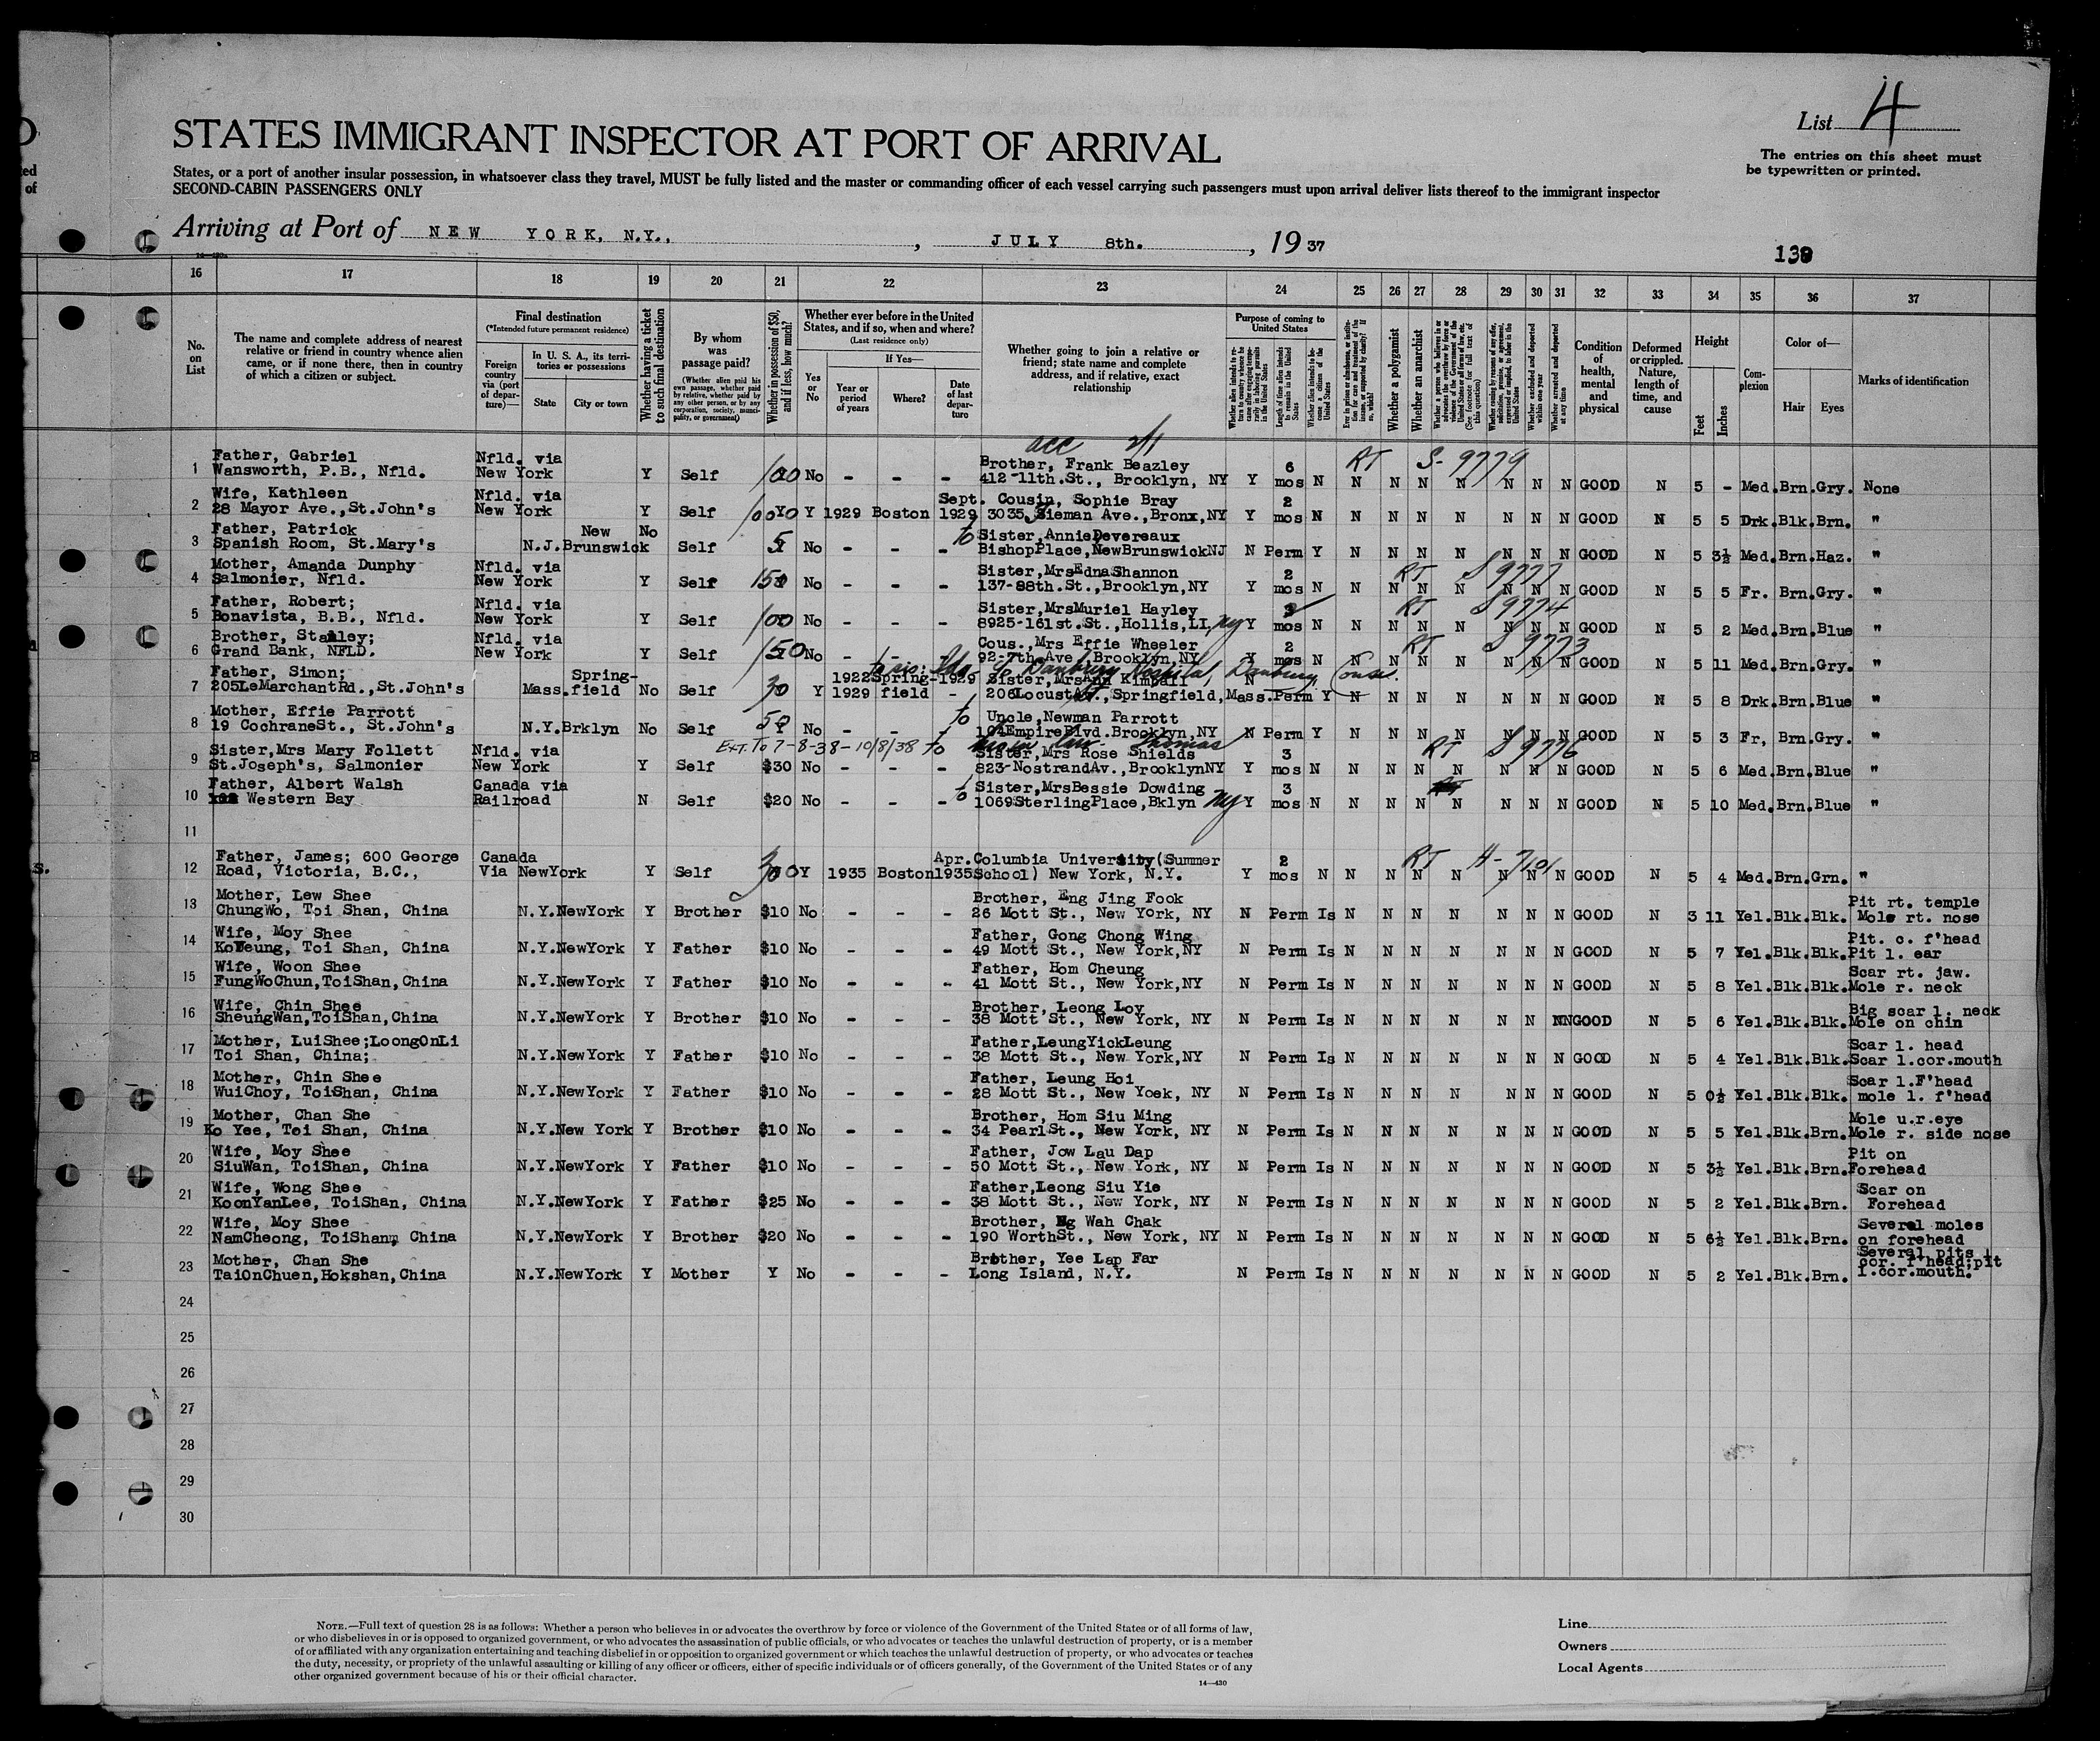 List 4
STATES IMMIGRANT INSPECTOR AT PORT OF ARRIVAL
The entries on this sheet must
be typewritten or printed.
States, or a port of another insular possession, in whatsoever class they travel, MUST be fully listed and the master or commanding officer of each vessel carrying such passengers must upon arrival deliver lists thereof to the immigrant inspector
SECOND-CABIN PASSENGERS ONLY
Arriving at Port of NEW YORK, N.Y., , JULY 8th. , 1937
16 17 18 19 20 21 22 23 24 25 26 27 28 29 30 31 32 33 34 35 36 37
No. on List
The name and complete address of nearest
relative or friend in country whence alien
came, or if none there, then in country
of which a citizen or subject.
Final destination
(*Intended future permanent residence)
Foreign country via (port of departure)—
In U. S. A., its territories or possessions
State
City or town
Whether having a ticket to such final destination
By whom was passage paid?
(Whether alien paid his own passage, whether paid by relative, whether paid by any other person, or by any corporation, society, municipality, or government)
Whether in possession of $50, and if less, how much?
Whether ever before in the United
States, and if so, when and where?
(Last residence only)
Yes or No
If Yes—
Year or period of years
Where?
Date of last departure
Whether going to join a relative or
friend; state name and complete
address, and if relative, exact
relationship
Purpose of coming to United States
Length of time alien intends to remain in the United States
Whether alien intends to become a citizen of the United States
Whether a polygamist
Whether an anarchist
Whether excluded and deported within one year
Whether arrested and deported at any time
Condition of health, mental and physical
Deformed or crippled. Nature, length of time, and cause
Height
Feet
Inches
Complexion
Color of—
Hair
Eyes
Marks of identification
acc
Father, Gabriel Nfld. via Brother, Frank Beazley 6 RT S-9779
1 Wansworth, P.B., Nfld. New York Y Self 100 No - - - 412-11th.St., Brooklyn, NY Y mos N N N N N N N N GOOD N 5 - Med. Brn. Gry. None
Wife, Kathleen Nfld. via Sept. Cousin, Sophie Bray 2
2 28 Mayor Ave., St.John's New York Y Self Y 1929 Boston 1929 Y mos N N N N N N N N GOOD N 5 5 Drk. Blk. Brn. "
Father, Patrick New No to Sister, Annie Devereaux
3 Spanish Room, St.Mary's N.J. Brunswick Self No - - - Bishop Place, New Brunswick NJ N Perm Y N N N N N N N GOOD N 5 3½ Med. Brn. Haz. "
Mother, Amanda Dunphy Nfld. via Sister, Mrs Edna Shannon 2 RT S 9777
4 Salmonier, Nfld. New York Y Self No - - - 137-88th.St., Brooklyn, NY Y mos N N N N N N N N GOOD N 5 5 Fr. Brn. Gry. "
Father, Robert; Nfld. via Sister, Mrs Muriel Hayley RT S 9774
5 Bonavista, B.B., Nfld. New York Y Self 100 No - - - 8925-161st.St., Hollis, LI, NY Y mos N N N N N N N N GOOD N 5 2 Med. Brn. Blue "
Brother, Stanley; Nfld. via Cous., Mrs Effie Wheeler 2 RT S 9773
6 Grand Bank, NFLD. New York Y Self No - - - 92-7th Ave, Brooklyn, NY Y mos N N N N N N N N GOOD N 5 11 Med. Brn. Gry. "
to Danbury Hospital, Danbury, Conn.
Father, Simon; Spring- 1922 Spring- 1929 Sister, Mrs Ann Kimball
7 205 LeMarchant Rd., St.John's Mass. field No Self 30 Y 1929 field - Springfield, Mass. Perm Y N N N N N N N GOOD N 5 8 Drk. Brn. Blue "
Mother, Effie Parrott to Uncle, Newman Parrott
8 19 Cochrane St., St.John's N.Y. Brklyn No Self No - - - 104 Empire Blvd. Brooklyn, NY N Perm Y N N N N N N N GOOD N 5 3 Fr, Brn. Gry. "
EXT. TO 7-8-38 - 10/8/38 to Thomas
Sister, Mrs Mary Follett Nfld. via Sister, Mrs Rose Shields 3 RT S 9776
9 St.Joseph's, Salmonier New York Y Self $30 No - - - 823-Nostrand Av., Brooklyn NY Y mos N N N N N N N N GOOD N 5 6 Med. Brn. Blue "
Father, Albert Walsh Canada via to Sister, Mrs Bessie Dowding 3
10 Western Bay Railroad N Self $20 No - - - 1069 Sterling Place, Bklyn NY Y mos N N N N N N N N GOOD N 5 10 Med. Brn. Blue "
11
Father, James; 600 George Canada Apr. Columbia University (Summer 2 RT H-7101
12 Road, Victoria, B.C., Via New York Y Self Y 1935 Boston 1935 School) New York, N.Y. Y mos N N N N N N N N GOOD N 5 4 Med. Brn. Grn. "
Mother, Lew Shee Brother, Eng Jing Fook Pit rt. temple
13 ChungWo, Toi Shan, China N.Y. NewYork Y Brother $10 No - - - 26 Mott St., New York, NY N Perm Is N N N N N N N GOOD N 3 11 Yel. Blk. Blk. Mole rt. nose
Wife, Moy Shee Father, Gong Chong Wing Pit. c. f'head
14 KoYeung, Toi Shan, China N.Y. NewYork Y Father $10 No - - - 49 Mott St., New York, NY N Perm Is N N N N N N N GOOD N 5 7 Yel. Blk. Blk. Pit l. ear
Wife, Woon Shee Father, Hom Cheung Scar rt. jaw.
15 FungWoChun, ToiShan, China N.Y. NewYork Y Father $10 No - - - 41 Mott St., New York, NY N Perm Is N N N N N N N GOOD N 5 8 Yel. Blk. Blk. Mole r. neck
Wife, Chin Shee Brother, Leong Loy Big scar l. neck
16 SheungWan, ToiShan, China N.Y. NewYork Y Brother $10 No - - - 38 Mott St., New York, NY N Perm Is N N N N N N NN GOOD N 5 6 Yel. Blk. Blk. Mole on chin
Mother, LuiShee; LoongOnLi Father, LeungYickLeung Scar l. head
17 Toi Shan, China; N.Y. NewYork Y Father $10 No - - - 38 Mott St., New York, NY N Perm Is N N N N N N N GOOD N 5 4 Yel. Blk. Blk. Scar l.cor.mouth
Mother, Chin Shee Father, Leung Hoi Scar l.F'head
18 WuiChoy, ToiShan, China N.Y. NewYork Y Father $10 No - - - 28 Mott St., New Yoek, NY N Perm Is N N N N N N N GOOD N 5 0½ Yel. Blk. Blk. mole l. f'head
Mother, Chan She Brother, Hom Siu Ming Mole u.r.eye
19 Ko Yee, Toi Shan, China N.Y. New York Y Brother $10 No - - - 34 Pearl St., New York, NY N Perm Is N N N N N N N GOOD N 5 5 Yel. Blk. Brn. Mole r. side nose
Wife, Moy Shee Father, Jow Lau Dap Pit on
20 SiuWan, ToiShan, China N.Y. NewYork Y Father $10 No - - - 50 Mott St., New York, NY N Perm Is N N N N N N N GOOD N 5 3½ Yel. Blk. Brn. Forehead
Wife, Wong Shee Father, Leong Siu Yie Scar on
21 KoonYanLee, ToiShan, China N.Y. NewYork Y Father $25 No - - - 38 Mott St., New York, NY N Perm Is N N N N N N N GOOD N 5 2 Yel. Blk. Brn. Forehead
Wife, Moy Shee Brother, Ng Wah Chak Several moles
22 NamCheong, ToiShan, China N.Y. NewYork Y Brother $20 No - - - 190 Worth St., New York, NY N Perm Is N N N N N N N GOOD N 5 6½ Yel. Blk. Brn. on forehead
Mother, Chan She Brother, Yee Lap Far Several pits cor. f'head; pit
23 TaiOnChuen, Hokshan, China N.Y. NewYork Y Mother Y No - - - Long Island, N.Y. N Perm Is N N N N N N N GOOD N 5 2 Yel. Blk. Brn. l.cor.mouth.
24
25
26
27
28
29
30
NOTE.—Full text of question 28 is as follows: Whether a person who believes in or advocates the overthrow by force or violence of the Government of the United States or of all forms of law,
or who disbelieves in or is opposed to organized government, or who advocates the assassination of public officials, or who advocates or teaches the unlawful destruction of property, or is a member
of or affiliated with any organization entertaining and teaching disbelief in or opposition to organized government or which teaches the unlawful destruction of property, or who advocates or teaches
the duty, necessity, or propriety of the unlawful assaulting or killing of any officer or officers, either of specific individuals or of officers generally, of the Government of the United States or of any
other organized government because of his or their official character.
14—430
Line
Owners
Local Agents